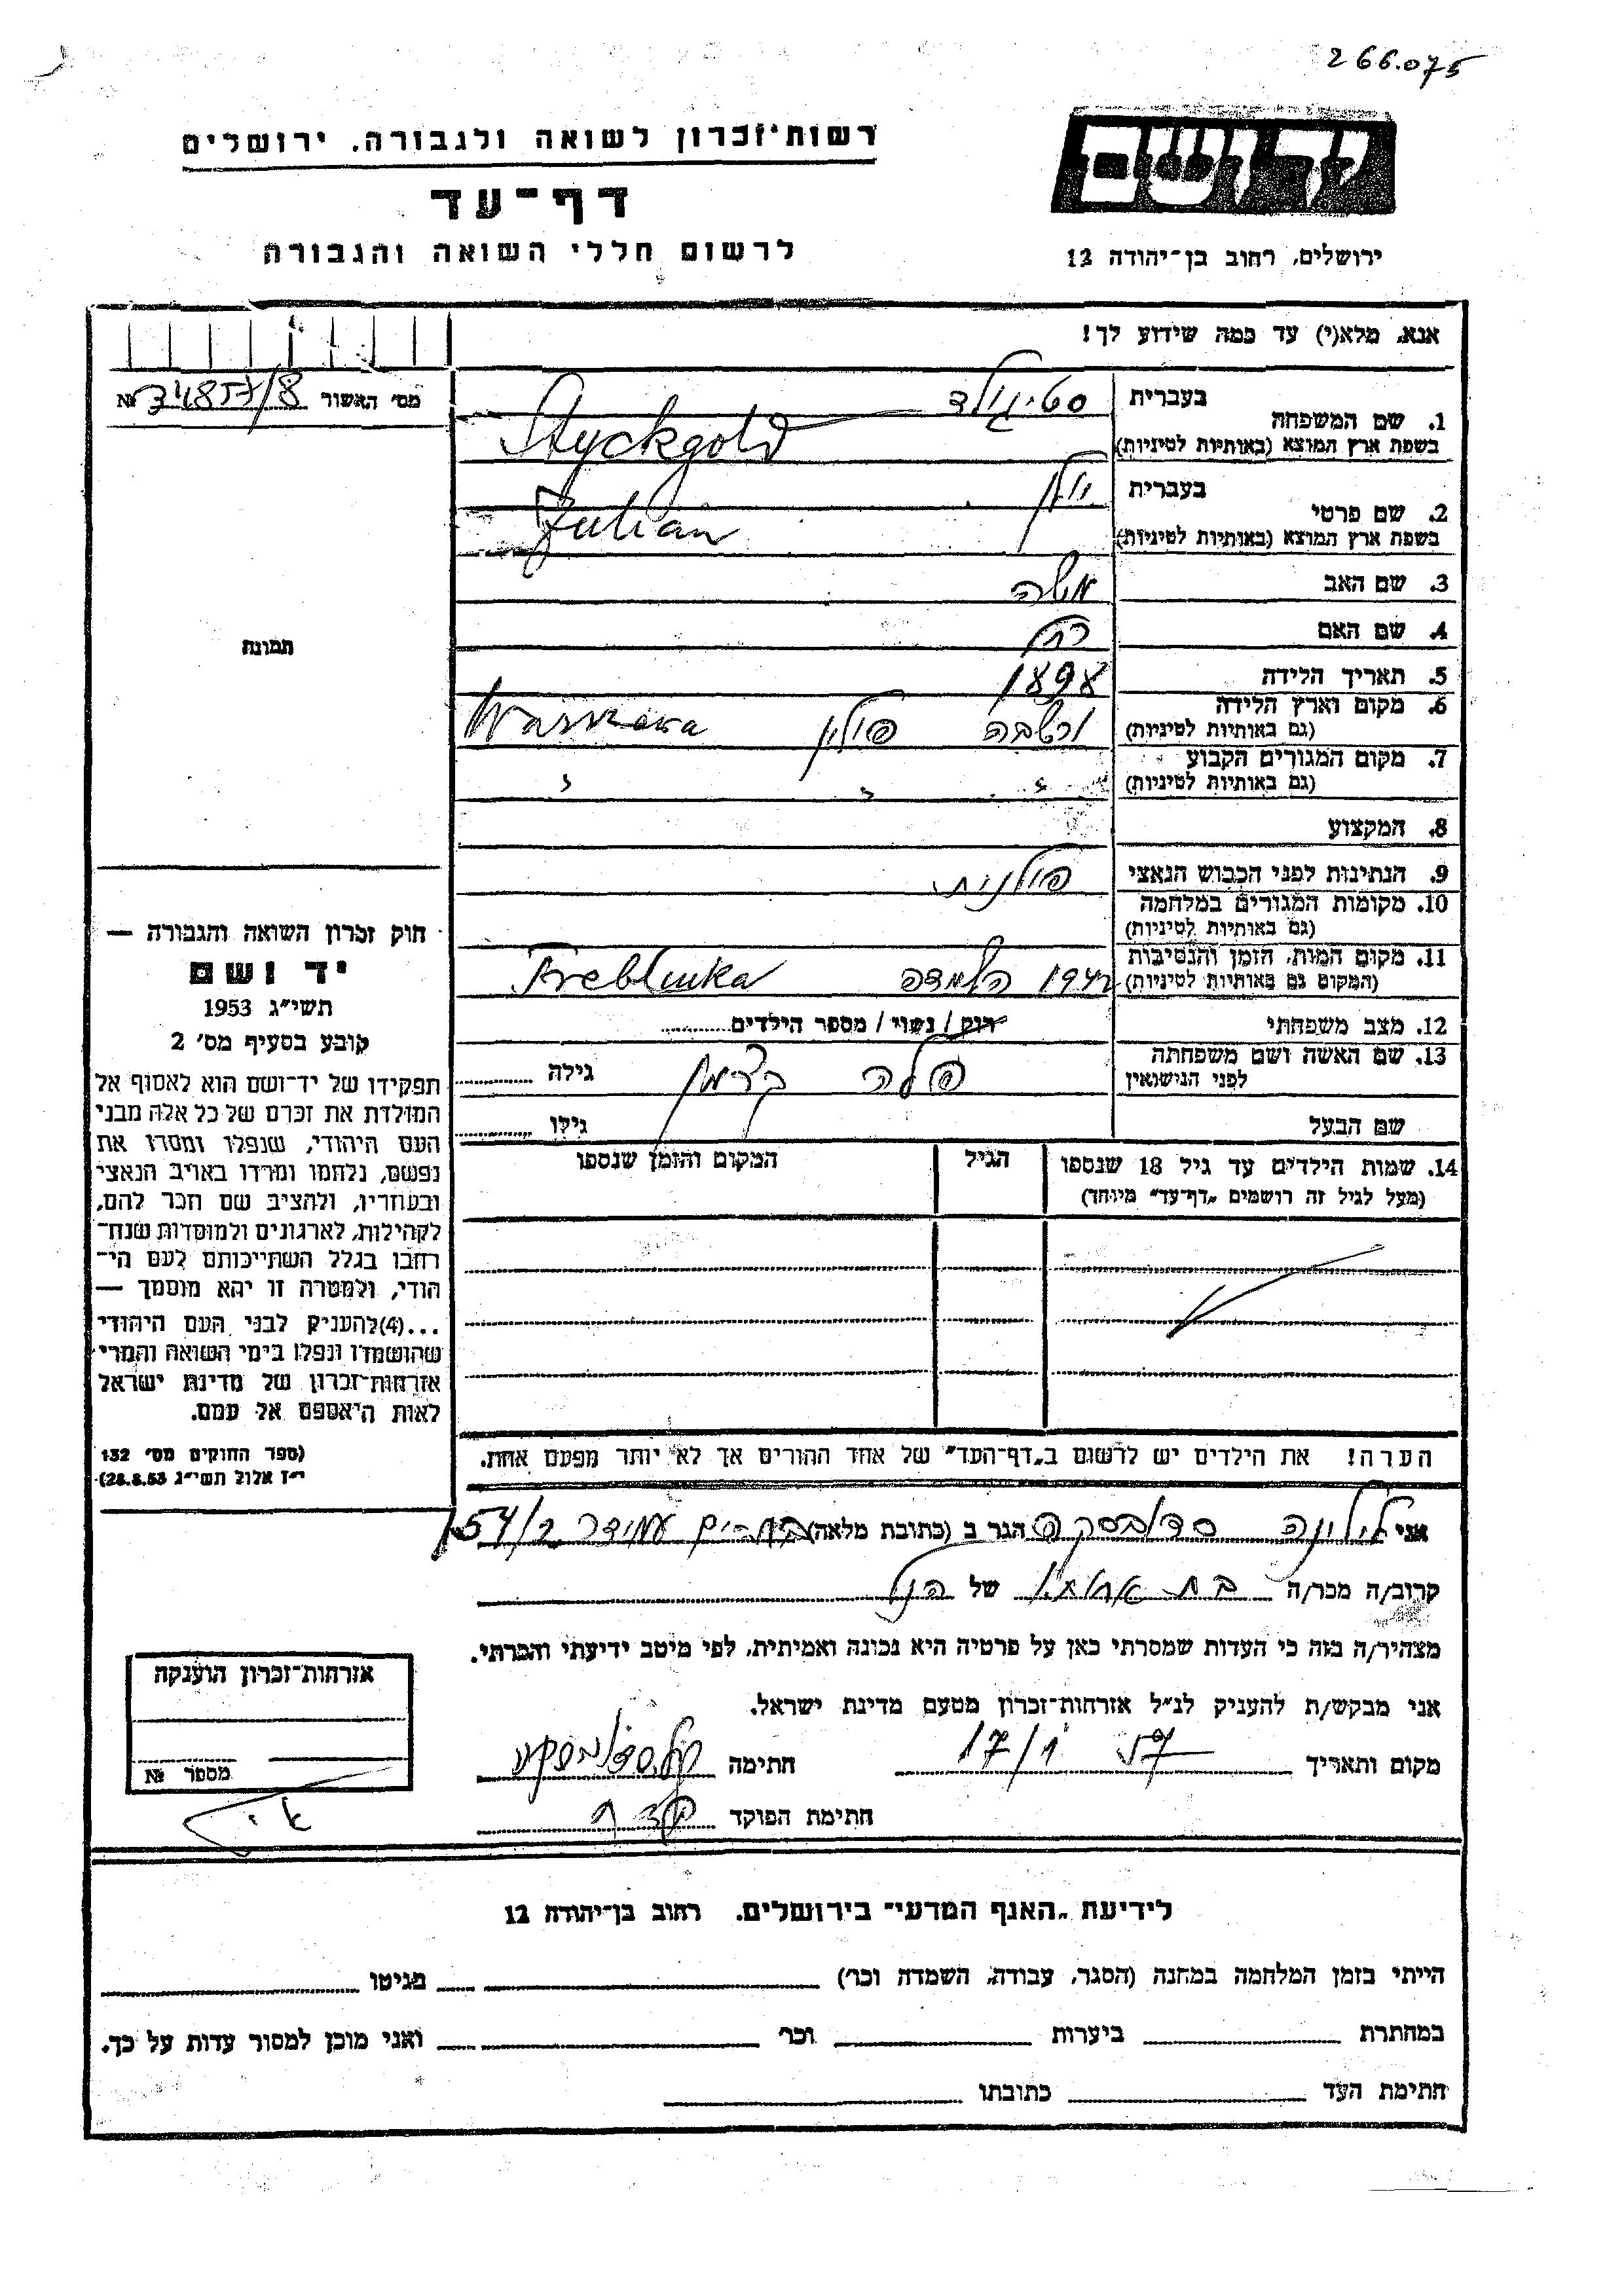 266.075
יד ושם
רשות־זכרון לשואה ולגבורה, ירושלים
דף־עד
לרשום חללי השואה והגבורה
ירושלים, רחוב בן־יהודה 12
אנא, מלא(י) עד כמה שידוע לך!
מס׳ האשור №
1. שם המשפחה
בעברית
בשפת ארץ המוצא (באותיות לטיניות)
Styckgold
2. שם פרטי
בעברית
יולן
בשפת ארץ המוצא (באותיות לטיניות)
Julian
3. שם האב משה
4. שם האם רחל
5. תאריך הלידה 1898
6. מקום וארץ הלידה
(גם באותיות לטיניות)
ורשבה פולין Warszawa
7. מקום המגורים הקבוע
(גם באותיות לטיניות)
8. המקצוע
9. הנתינות לפני הכבוש הנאצי פולנית
10. מקומות המגורים במלחמה
(גם באותיות לטיניות)
11. מקום המות, הזמן והנסיבות
(המקום גם באותיות לטיניות)
1942 השמדה Treblinka
12. מצב משפחתי רוק / נשוי / מספר הילדים
13. שם האשה ושם משפחתה
לפני הנישואין
פלה גילה
שם הבעל גילו
14. שמות הילדים עד גיל 18 שנספו הגיל המקום והזמן שנספו
(מעל לגיל זה רושמים „דף־עד״ מיוחד)
הערה! את הילדים יש לרשום ב„דף־העד״ של אחד ההורים אך לא יותר מפעם אחת.
תמונה
חוק זכרון השואה והגבורה —
יד ושם
תשי״ג 1953
קובע בסעיף מס׳ 2
תפקידו של יד־ושם הוא לאסוף אל
המולדת את זכרם של כל אלה מבני
העם היהודי, שנפלו ומסרו את
נפשם, נלחמו ומרדו באויב הנאצי
ובעוזריו, ולהציב שם וזכר להם,
לקהילות, לארגונים ולמוסדות שנח־
רבו בגלל השתייכותם לעם הי־
הודי, ולמטרה זו יהא מוסמך —
...(4)להעניק לבני העם היהודי
שהושמדו ונפלו בימי השואה והמרי
אזרחות־זכרון של מדינת ישראל
לאות היאספם אל עמם.
(ספר החוקים מס׳ 132
י״ז אלול תשי״ג 28.8.53)
אני הגר ב (כתובת מלאה) עמידר 54/2
קרוב/ה מכר/ה בת אחותו של הנ״ל
מצהיר/ה בזה כי העדות שמסרתי כאן על פרטיה היא נכונה ואמיתית, לפי מיטב ידיעתי והכרתי.
אני מבקש/ת להעניק לנ״ל אזרחות־זכרון מטעם מדינת ישראל.
מקום ותאריך 17/1 57 חתימה
חתימת הפוקד
אזרחות־זכרון הוענקה
מספר №
לידיעת „האגף המדעי״ בירושלים, רחוב בן־יהודה 12
הייתי בזמן המלחמה במחנה (הסגר, עבודה, השמדה וכו׳) בגיטו
במחתרת ביערות וכו׳ ואני מוכן למסור עדות על כך.
חתימת העד כתובתו